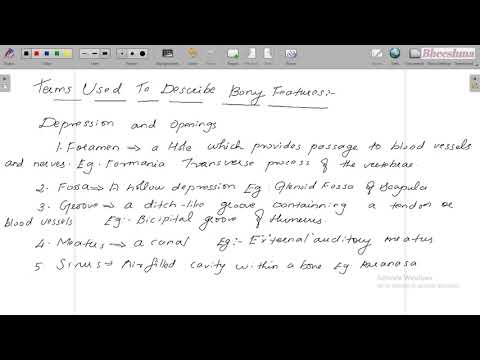 Bheeshma
Terms Used To Describe Bony Features:-
Depression and Openings
1. Foramen → a Hole which provides passage to blood vessels
and nerves. Eg. Formania Transverse process of the vertebrae
2. Fossa → A hollow depression Eg Glenoid Fossa of Scapula
3. Groove → a ditch-like groove containning a tendon or
blood vessels Eg:- Bicipital groove of Humerus.
4. Meatus → a canal Eg:- External auditory meatus
5 Sinus → Air filled cavity within a bone Eg Paranasa
Activate Windows